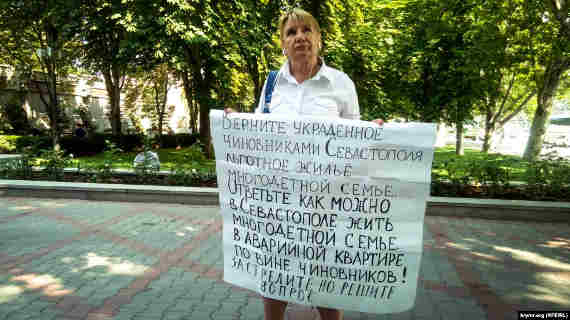 Верните украденное
чиновниками Севастополя
льготное жильё
многодетной семье.
Ответьте как можно
в Севастополе жить
многодетной семье
в аварийной квартире
по вине чиновников!
Застрелите, но решите
вопрос
krymr.org (RFE/RL)